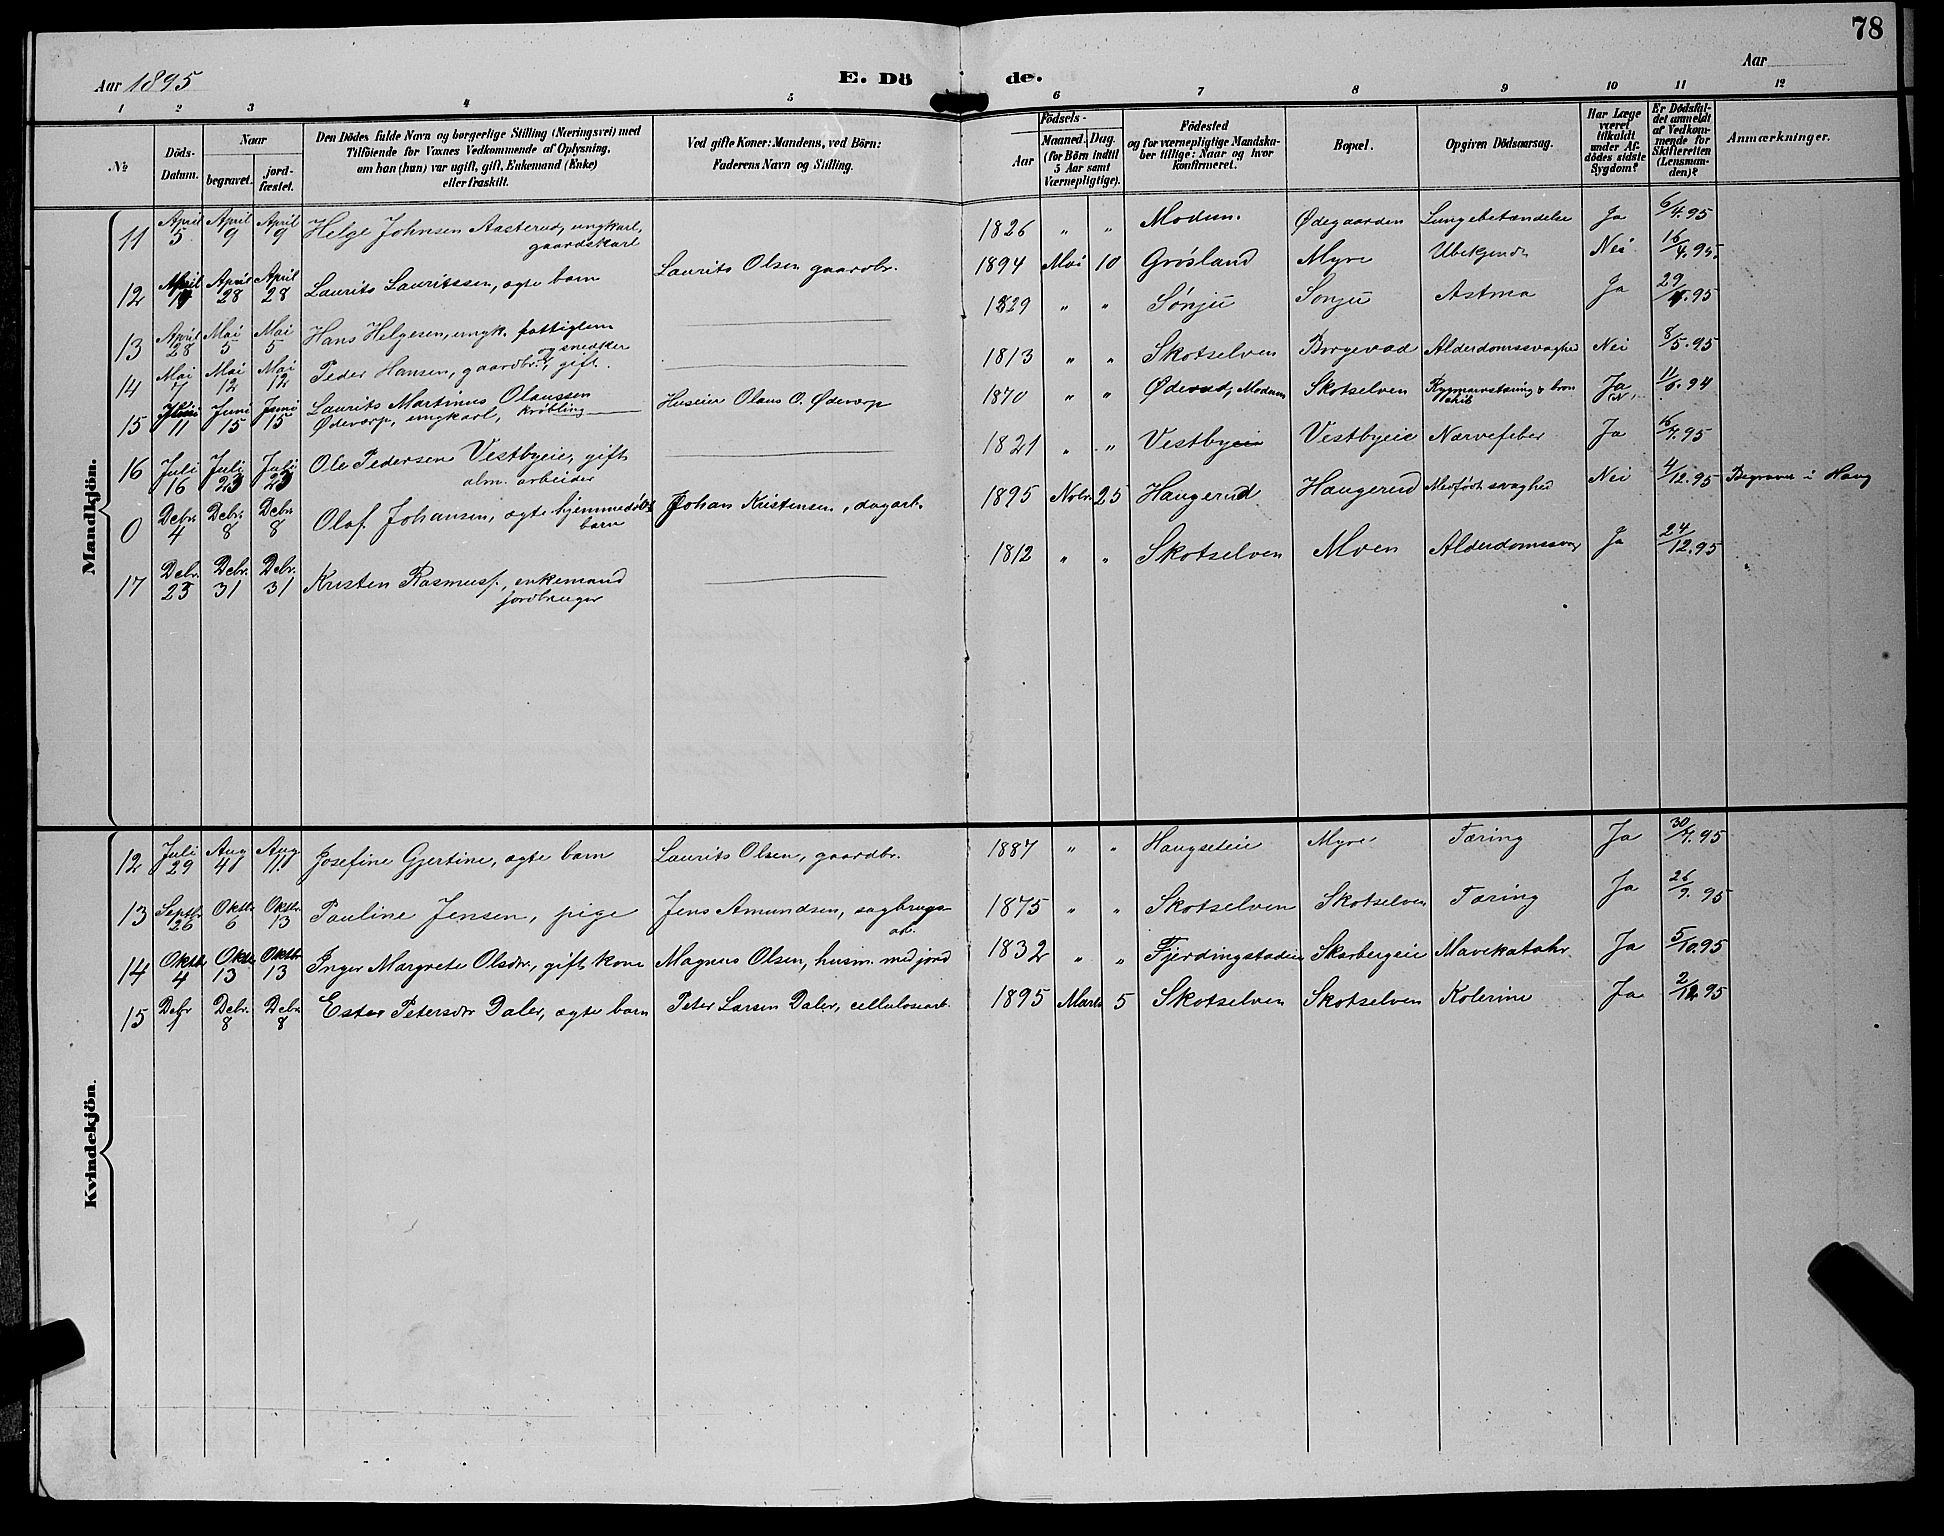 78
Aar 1895
E. Dö
de.
Aar
1 2 3 4 5 6 7 8 9 10 11 12
№
Döds-Datum.
Naar
begravet.
jord-fæstet.
Den Dödes fulde Navn og borgerlige Stilling (Næringsvei) med
Tilföiende for Voxnes Vedkommende af Oplysning,
om han (hun) var ugift, gift, Enkemand (Enke)
eller fraskilt.
Ved gifte Koner: Mandens, ved Börn:
Faderens Navn og Stilling.
Födsels-
Aar
Maaned. Dag.
(for Börn indtil
5 Aar samt
Værnepligtige).
Födested
og for værnepligtige Mandska-
ber tillige: Naar og hvor
konfirmeret.
Bopæl.
Opgiven Dödsaarsag.
Har Læge
været
tilkaldt
under Af-
dödes sidste
Sygdom?
Er Dödsfal-
det anmeldt
af Vedkom-
mende for
Skifteretten
(Lensman-
den)?
Anmærkninger.
Mandkjön.
11 April 5 April 9 April 9 Helge Johnsen Aasterud, ungkarl, gaardskarl 1826 " " Modum. Ødegaarden Lungebetændelse Ja 6/4.95
12 April April 28 April 28 Laurits Lauritssen, ægte barn Laurits Olsen gaardbr. 1894 Mai 10 Grøsland Myre Ubekjendt Nei 16/4.95.
13 April 28 Mai 5 Mai 5 Hans Helgesen, ungk. fattiglem 1829 " " Sønju Sønju Astma Ja 29/4.95
14 Mai 7 Mai 12 Mai 12 Peder Hansen, gaardbr. og snedker, gift. 1813 " " Skotselven Borgevad Alderdomssvaghed Nei 8/5.95
15 Juni 11 Juni 15 Juni 15 Laurits Martinus Olaussen Ødeværp, ungkarl, krøbling Huseier Olaus O. Ødeværp 1870 " " Øderud, Modum Skotselven Ja 11/6.94
16 Juli 16 Juli 23 Juli 23 Ole Pedersen Vestbyeie, gift alm. arbeider 1821 " " Vestbyeie Vestbyeie Nervefeber Ja 16/7.95
0 Debr. 4 Debr. 8 Debr. 8 Olaf Johansen, ægte hjemmedøbt barn Johan Kristensen, dagarb. 1895 Nobr. 25 Haugerud Haugerud Medfødt svaghed Nei 4/12.95 Begravet i Haug
17 Debr. 23 Debr. 31 Debr. 31 Kristen Rasmuss., enkemand jordbruger 1812 " " Skotselven Moen Alderdomssvag Ja 24/12.95
Kvindekjön.
12 Juli 29 Aug 4 Aug 11 Josefine Gjertine, ægte barn Laurits Olsen, gaardbr. 1887 " " Haugseteie Myre Tæring Ja 30/7.95
13 Septbr. 26 Oktbr. 6 Oktbr. 13 Pauline Jensen, pige Jens Amundsen, sagbrugs-arb. 1875 " " Skotselven Skotselven Tæring Ja 26/9.95
14 Oktbr. 4 Oktbr. 13 Oktbr. 13 Inger Margrete Olsdtr., gift kone Magnus Olsen, husm. med jord 1832 " " Fjerdingstadeie Skarbergeie Mavekatahr Ja 5/10.95
15 Debr. 1 Debr. 8 Debr. 8 Ester Petersdtr Daler, ægte barn Peter Larsen Daler, cellulosearb. 1895 Marts 5 Skotselven Skotselven Kolerine Ja 2/12.95